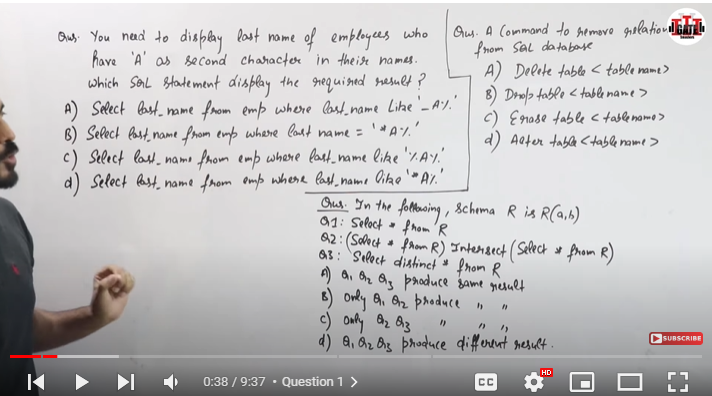 Ques. You need to display last name of employees who
have 'A' as second character in their names.
Which SQL statement display the required result?
A) Select last_name from emp where last_name Like '_A%'
B) Select last_name from emp where last name = '*A%'
C) Select last_name from emp where last_name like '%A%'
d) Select last_name from emp where last_name like '*A%'
Ques. A Command to remove relation
from SQL database
A) Delete table <table name>
B) Drop table <table name>
C) Erase table <table name>
d) Alter table <table name>
Ques. In the following, schema R is R(a,b)
Q1: Select * from R
Q2: (Select * from R) Intersect (Select * from R)
Q3: Select distinct * from R
A) Q1 Q2 Q3 produce same result
B) only Q1 Q2 produce " "
C) only Q2 Q3 " " "
d) Q1 Q2 Q3 produce different result.
GATE
SUBSCRIBE
0:38 / 9:37 • Question 1 >
CC
HD